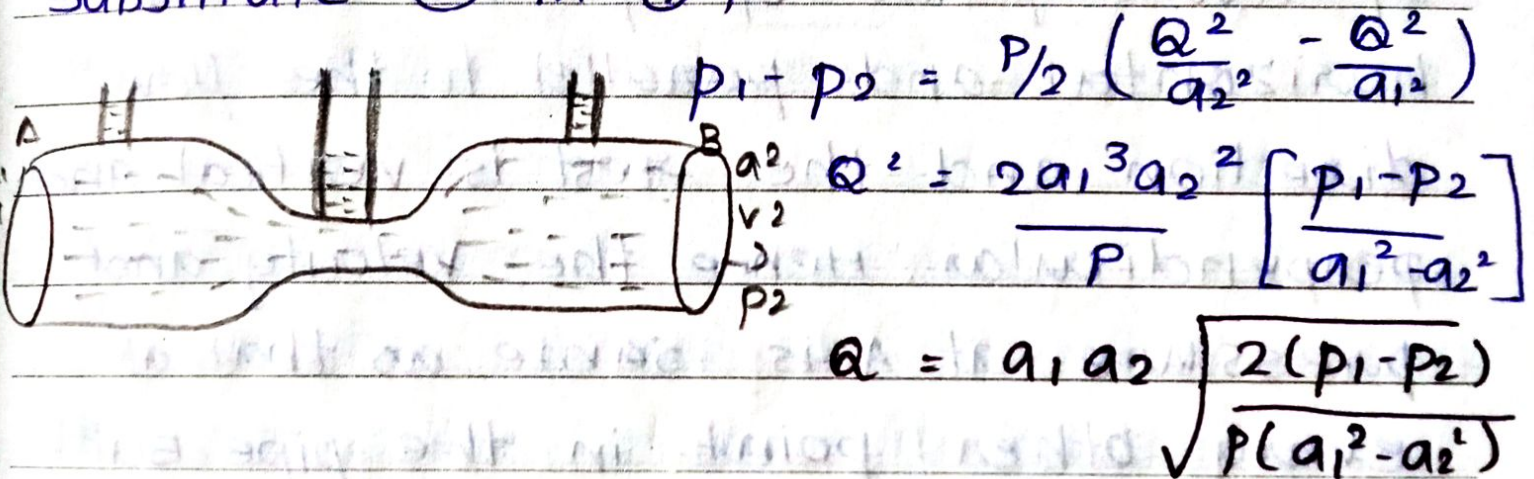 Substitute
p1 - p2 = P/2 (Q²/a2² - Q²/a1²)
A
B
a2
v2
p2
Q² = 2a1³a2²/P [p1-p2/a1²-a2²]
Q = a1 a2 √2(p1-p2)/P(a1²-a2²)